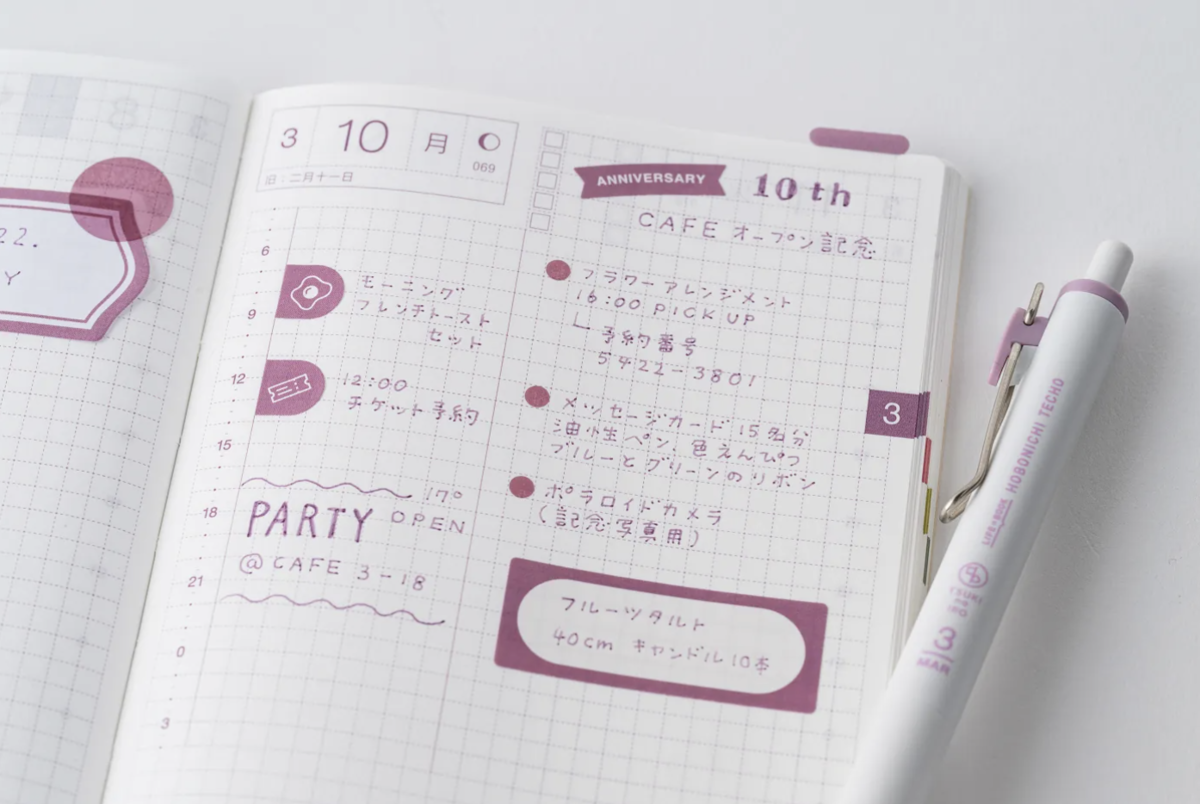 22.
Y
3 10 月
069
旧:二月十一日
6
9
12
15
18
21
0
3
モーニング
フレンチトースト
セット
12:00
チケット予約
17°
PARTY OPEN
@ CAFE 3-18
ANNIVERSARY 10th
CAFE オープン記念
フラワーアレンジメント
16:00 PICK UP
予約番号
5422-3801
メッセージカード 15名分
油性ペン、色えんぴつ
ブルーとグリーンのリボン
ポラロイドカメラ
(記念写真用)
フルーツタルト
40cm キャンドル10本
3
LIFE HOBONICHI TECHO
TSUKI
3
MAR